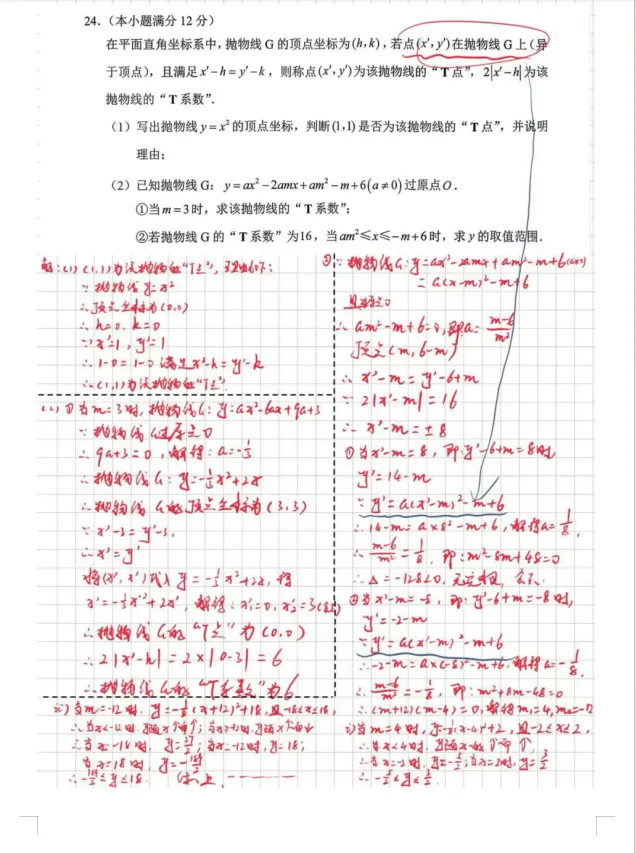 24.（本小题满分 12 分）
在平面直角坐标系中，抛物线 G 的顶点坐标为(h,k)，若点(x′,y′)在抛物线 G 上（异
于顶点），且满足x′−h=y′−k，则称点(x′,y′)为该抛物线的“T 点”，2|x′−h|为该
抛物线的“T 系数”.
（1）写出抛物线y=x²的顶点坐标，判断(1,1)是否为该抛物线的“T 点”，并说明
理由；
（2）已知抛物线 G：y=ax²−2amx+am²−m+6(a≠0)过原点O.
①当m=3时，求该抛物线的“T 系数”；
②若抛物线 G 的“T 系数”为16，当am²≤x≤−m+6时，求y的取值范围.
解:(1) (1,1)为该抛物线的“T点”, 理由如下:
∵抛物线y=x²
∴顶点坐标为(0,0)
∴h=0, k=0
∵x′=1, y′=1
∴1-0=1-0 满足x′-h=y′-k
∴(1,1)为该抛物线的“T点”.
(2) ①当m=3时, 抛物线G: y=ax²-6ax+9a+3
∵抛物线G过原点O
∴9a+3=0, 解得: a=-1/3
∴抛物线G: y=-1/3x²+2x
∴抛物线G的顶点坐标为(3,3)
∵x′-3=y′-3,
∴x′=y′
将(x′,x′)代入y=-1/3x²+2x, 得
x′=-1/3x′²+2x′, 解得: x₁′=0, x₂′=3(舍去)
∴抛物线G的“T点”为(0,0)
∴2|x′-h|=2×|0-3|=6
∴抛物线G的“T系数”为6
②∵抛物线G: y=ax²-2amx+am²-m+6(a≠0)
=a(x-m)²-m+6
且过点O
∴am²-m+6=0, 即a=(m-6)/m²
顶点(m,6-m)
∴x′-m=y′-6+m
∵2|x′-m|=16
∴x′-m=±8
①当x′-m=8, 即y′-6+m=8时,
y′=14-m
∵y′=a(x′-m)²-m+6
∴14-m=a×8²-m+6, 解得a=1/8
∴(m-6)/m²=1/8, 即: m²-8m+48=0
∴△=-128<0, 无实根, 舍去.
②当x′-m=-8, 即: y′-6+m=-8时,
y′=-2-m
∵y′=a(x′-m)²-m+6
∴-2-m=a×(-8)²-m+6, 解得a=-1/8.
∴(m-6)/m²=-1/8, 即: m²+8m-48=0
∴(m+12)(m-4)=0, 解得m₁=4, m₂=-12
i)当m=4时, y=-1/8(x-4)²+2, 且-2≤x≤2,
∴当x<4时,
∴当x=-2时, y=-5/2; 当x=2时, y=3/2
ii)当m=-12时, y=-1/8(x+12)²+18, 且-18≤x≤18,
∴当x=-18时, y=27/2; 当x=-12时, y=18;
当x=18时, y=
≤y≤18. 综上